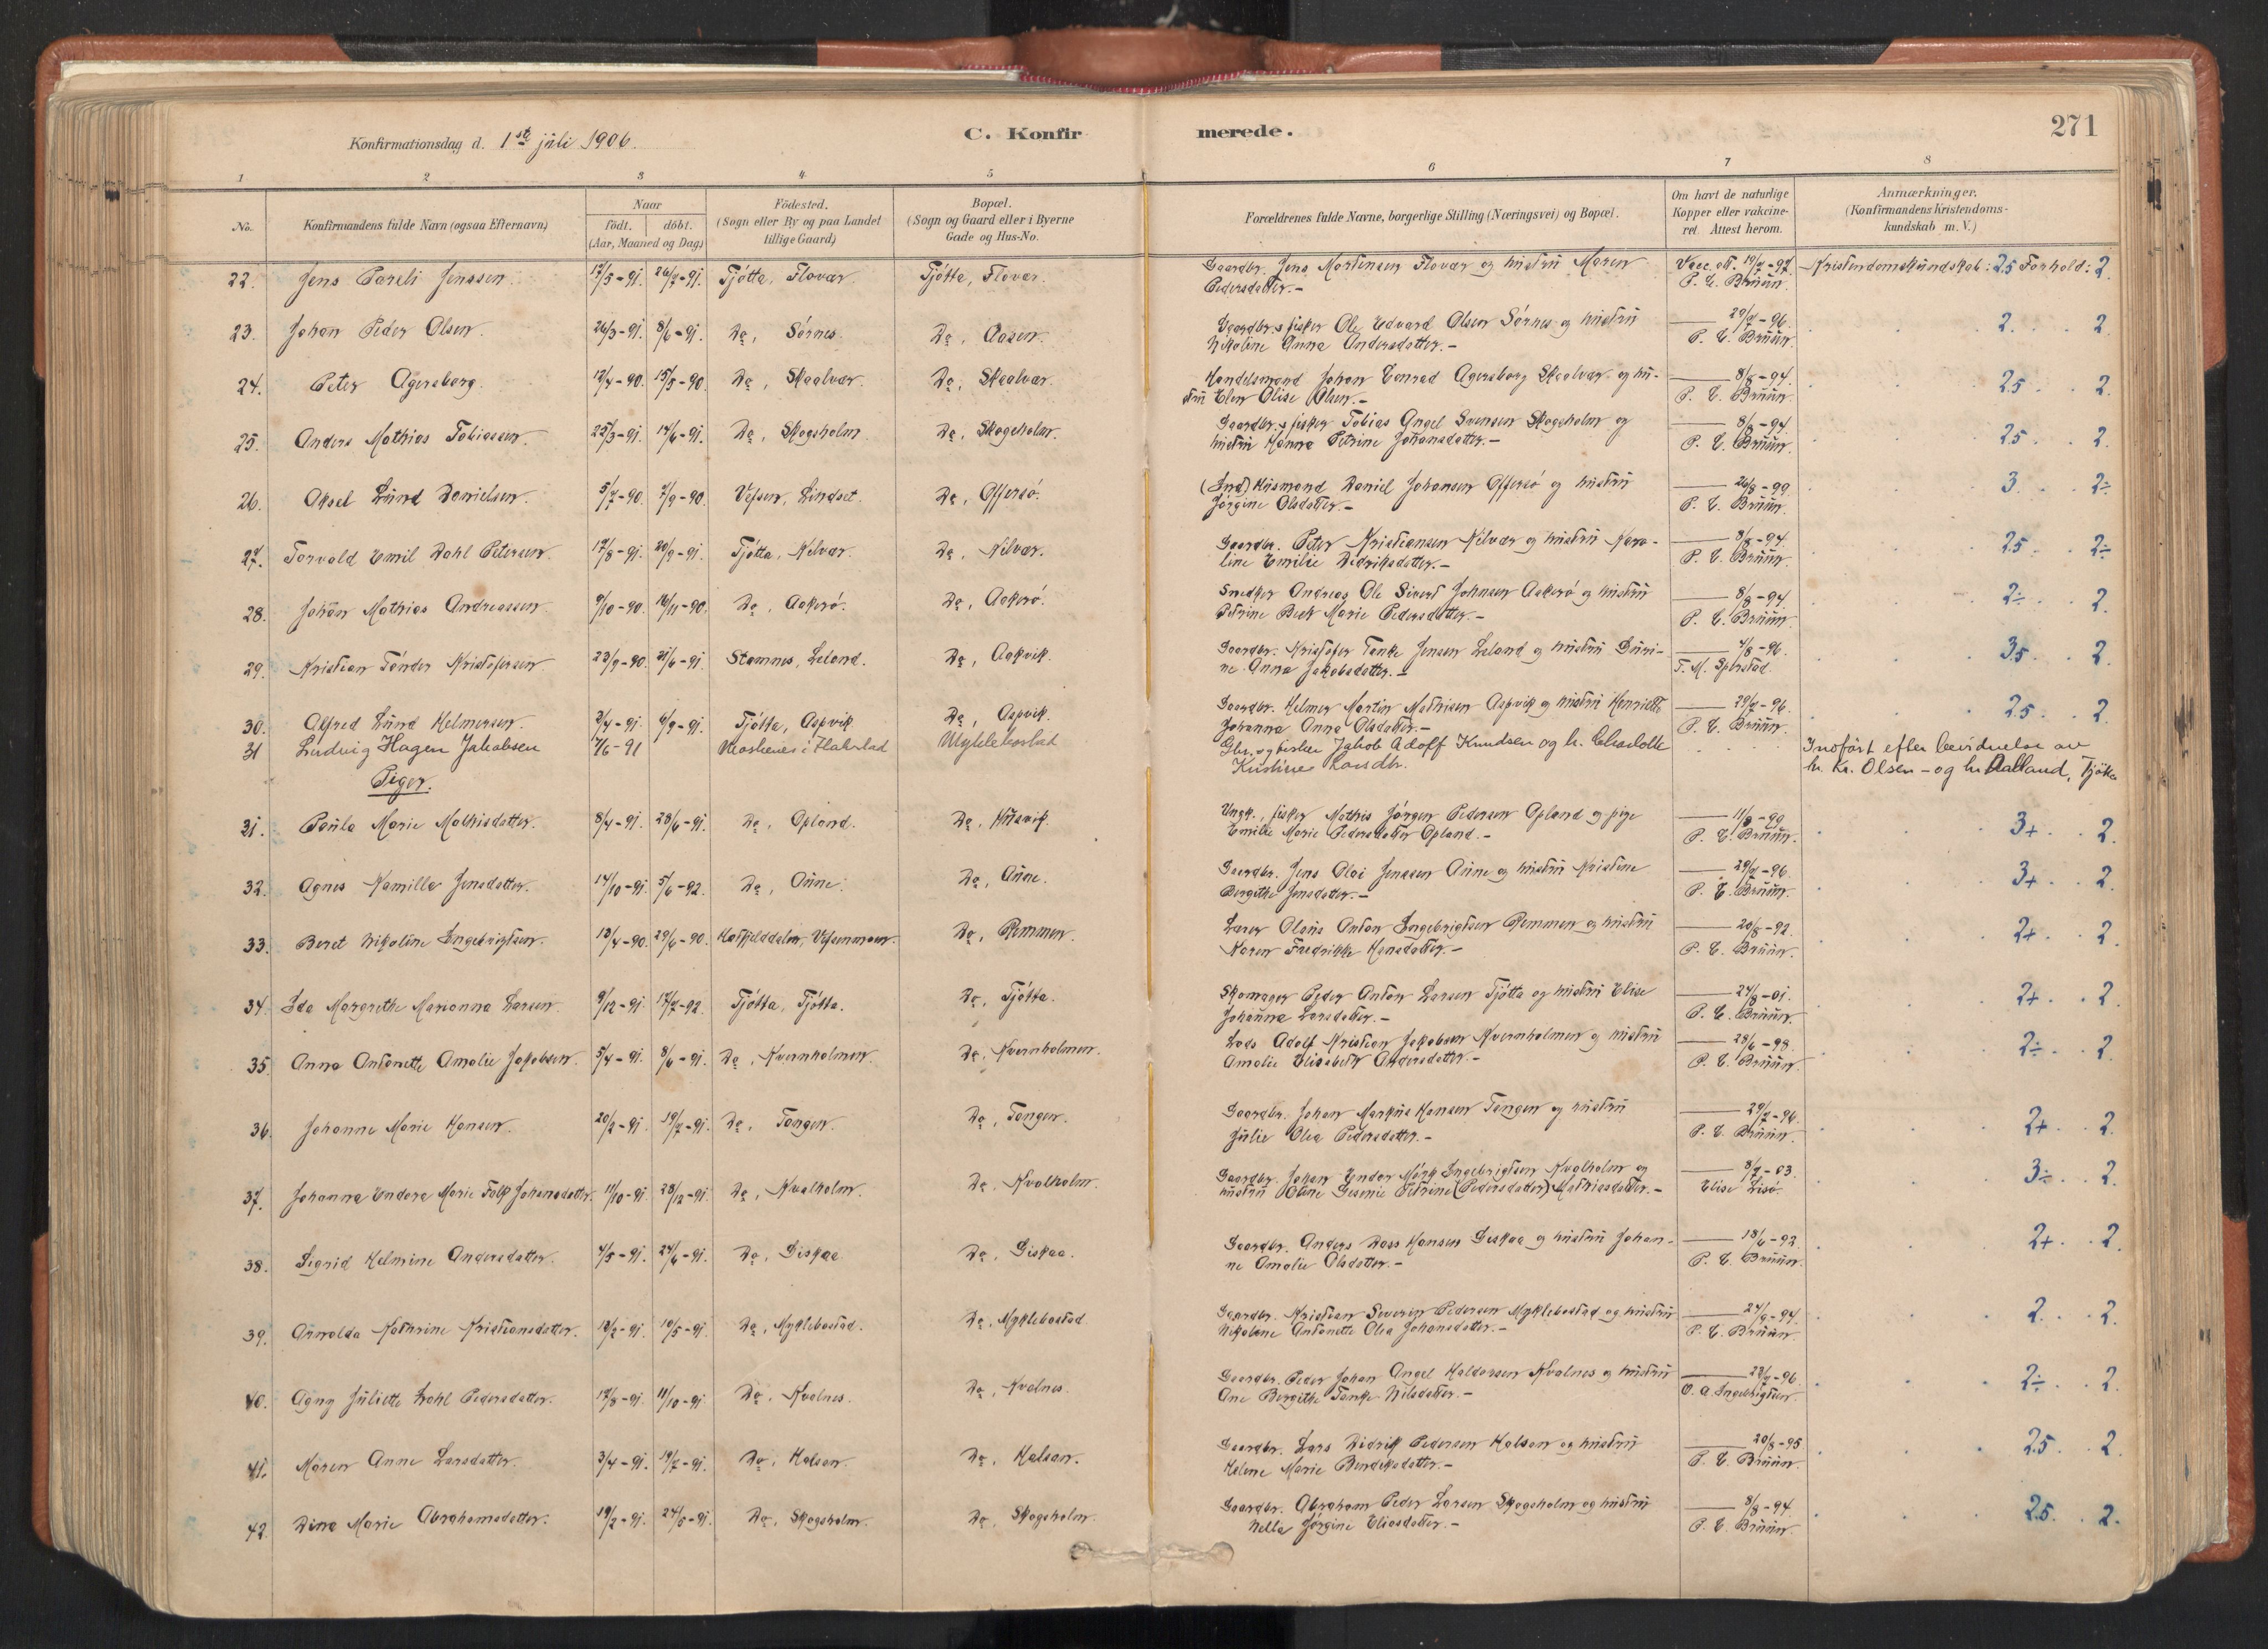 271
Konfirmationsdag d. 1ste juli 1906.
C. Konfirmerede.
1 2 3 4 5 6 7 8
No. | Konfirmandens fulde Navn (ogsaa Efternavn) | Naar födt. döbt. (Aar, Maaned og Dag) | Födested. (Sogn eller By og paa Landet tillige Gaard) | Bopæl. (Sogn og Gaard eller i Byerne Gade og Hus-No. | Forældrenes fulde Navne, borgerlige Stilling (Næringsvei) og Bopæl. | Om havt de naturlige Kopper eller vakcineret. Attest herom. | Anmærkninger. (Konfirmandens Kristendomskundskab m. V.)
22. Jens Pareli Jenssen. 17/5-91. 26/7-91. Tjötta, Flovær. Tjötta, Flovær. Gaardbr. Jens Mortensen Flovær og hustru Maren Vacc. att. 19/7-97. Kristendomskundskab: 2.5 Forhold: 2.
Pedersdatter.- P. E. Bruun.
23. Johan Peder Olsen. 26/3-91. 8/6-91. Do, Sörnes. Do, Aasen. Gaardbr. & fisker Ole Edvard Olsen Sörnes og hustru 29/7-96. 2. 2.
Nikoline Anna Andersdatter.- P. E. Bruun.
24. Peter Agersborg. 12/4-90. 15/5-90. Do, Skaalvær. Do, Skaalvær. Handelsmand Johan Conrad Agersborg Skaalvær og hu- 8/8-94. 2.5 2.
stru Elen Olise Olsen.- P. E. Bruun.
25. Anders Mathias Tobiassen. 25/3-91. 14/6-91. Do, Skogsholm. Do, Skogsholm. Gaardbr. & fisker Tobias Angel Svensen Skogsholm og 8/8-94. 2.5 2.
hustru Hanna Petrine Johansdatter.- P. E. Bruun.
26. Aksel Lund Danielsen. 5/7-90. 7/9-90. Vefsen, Lindset. Do, Offersö. (Ind) Husmand Daniel Johansen Offersö og hustru 26/8-99. 3 2÷
Jörgine Olsdatter.- P. E. Bruun.
27. Torvald Emil Dahl Petersen. 17/8-91. 20/9-91. Tjötta, Kilvær. Do, Kilvær. Gaardbr. Peter Kristiansen Kilvær og hustru Karo- 8/8-94. 2.5 2÷
line Emilie Didriksdatter.- P. E. Bruun.
28. Johan Mathias Andreassen. 9/10-90. 16/11-90. Do, Aakerö. Do, Aakerö. Snedker Andreas Ole Sivert Johnsen Aakerö og hustru 8/8-94. 2÷ 2.
Petrine Beck Marie Pedersdatter.- P. E. Bruun.
29. Kristian Tönder Kristofersen. 23/9-90. 21/6-91. Stamnes, Leland. Do, Aakvik. Gaardbr. Kristofer Tanke Jensen Leland og hustru Guri- 4/8-96. 3.5 2.
ne Anna Jakobsdatter.- T. M. Sperstad.
30. Alfred Lund Helmersen. 2/4-91. 6/9-91. Tjötta, Aspvik. Do, Aspvik. Gaardbr. Helmer Martin Mathisen Aspvik og hustru Henriette 29/7-96. 2.5 2.
Johanna Anna Olsdatter.- P. E. Bruun.
31 Ludvig Hagen Jakobsen 7/6-91 Moskenes i Hakstad Myklebostad Gbr. og fisker Jakob Adolf Knudsen og h. Charlotte Indfört efter bevidnelse av
Kristine Larsdtr. hr. Kr. Olsen - og hr. Aalland, Tjötta
Piger.
31. Paula Marie Mathisdatter. 8/4-91. 28/6-91. Do, Opland. Do, Husvik. Ungk., fisker Mathis Jörgen Pedersen Opland og pige 11/8-99. 3+ 2.
Emilie Marie Pedersdatter Opland.- P. E. Bruun.
32. Agnes Kamilla Jensdatter. 14/10-91. 5/6-92. Do, Aune. Do, Aune. Gaardbr. Jens Olai Jenssen Aune og hustru Kristine 29/7-96. 3+ 2.
Bergithe Jensdatter.- P. E. Bruun.
33. Beret Nikoline Engebrigtsen. 13/4-90. 29/6-90. Hatfjelddalen, Vefsenmoen. Do, Remmen. Lærer Olaus Anton Engebrigtsen Remmen og hustru 20/8-92. 2+ 2.
Karen Fredrikke Hansdatter.- P. E. Bruun.
34. Ida Margrethe Marianna Larsen. 9/12-91. 17/7-92. Tjötta, Tjötta. Do, Tjötta. Skomager Peder Anton Larsen Tjötta og hustru Elise 24/8-01. 2+ 2.
Johanna Larsdatter.- P. E. Bruun.
35. Anna Antonette Amalie Jakobsen. 5/4-91. 8/6-91. Do, Kvernholmen. Do, Kvernholmen. Lods Adolf Kristian Jakobsen Kvernholmen og hustru 28/6-98. 2÷ 2.
Amalie Elisabeth Andersdatter.- P. E. Bruun.
36. Johanne Marie Hansen. 20/2-91. 19/7-91. Do, Tangen. Do, Tangen. Gaardbr. Johan Markus Hansen Tangen og hustru 29/7-96. 2+ 2.
Julie Olea Pedersdatter.- P. E. Bruun.
37. Johanna Endera Marie Falk Johansdatter. 11/10-91. 28/12-91. Do, Kvalholm. Do, Kvalholm. Gaardbr. Johan Ender Mörk Engebrigtsen Kvalholm og 8/7-03. 3÷ 2.
hustru Oline Gesenie Petrine (Pedersdatter) Mathiasdatter.- Elise Lisö.
38. Sigrid Helmine Andersdatter. 4/5-91. 24/6-91. Do, Giskaa. Do, Giskaa. Gaardbr. Anders Dass Hansen Giskaa og hustru Johan- 18/6-92. 2+ 2.
ne Amalie Olsdatter.- P. E. Bruun.
39. Arnolda Kathrine Kristiansdatter. 12/2-91. 10/5-91. Do, Myklebostad. Do, Myklebostad. Gaardbr. Kristian Severin Pedersen Myklebostad og hustru 24/9-94. 2. 2.
Nikoline Antonette Olea Johansdatter.- P. E. Bruun.
40. Agny Juliette Dahl Pedersdatter. 17/8-91. 11/10-91. Do, Kvalnes. Do, Kvalnes. Gaardbr. Peder Johan Angel Haldorsen Kvalnes og hustru 28/7-96. 2÷ 2.
Ane Bergithe Tanke Nilsdatter.- O. A. Engebrigtsen.
41. Maren Anne Larsdatter. 3/4-91. 19/7-91. Do, Halsan. Do, Halsan. Gaardbr. Lars Didrik Pedersen Halsan og hustru 20/8-95 2.5 2.
Helene Marie Bendiksdatter.- P. E. Bruun.
42. Dina Marie Abrahamsdatter. 19/2-91. 24/5-91. Do, Skogsholm. Do, Skogsholm. Gaardbr. Abraham Peder Larsen Skogsholm og hustru 8/8-94. 2.5. 2.
Nella Jörgine Eliasdatter.- P. E. Bruun.